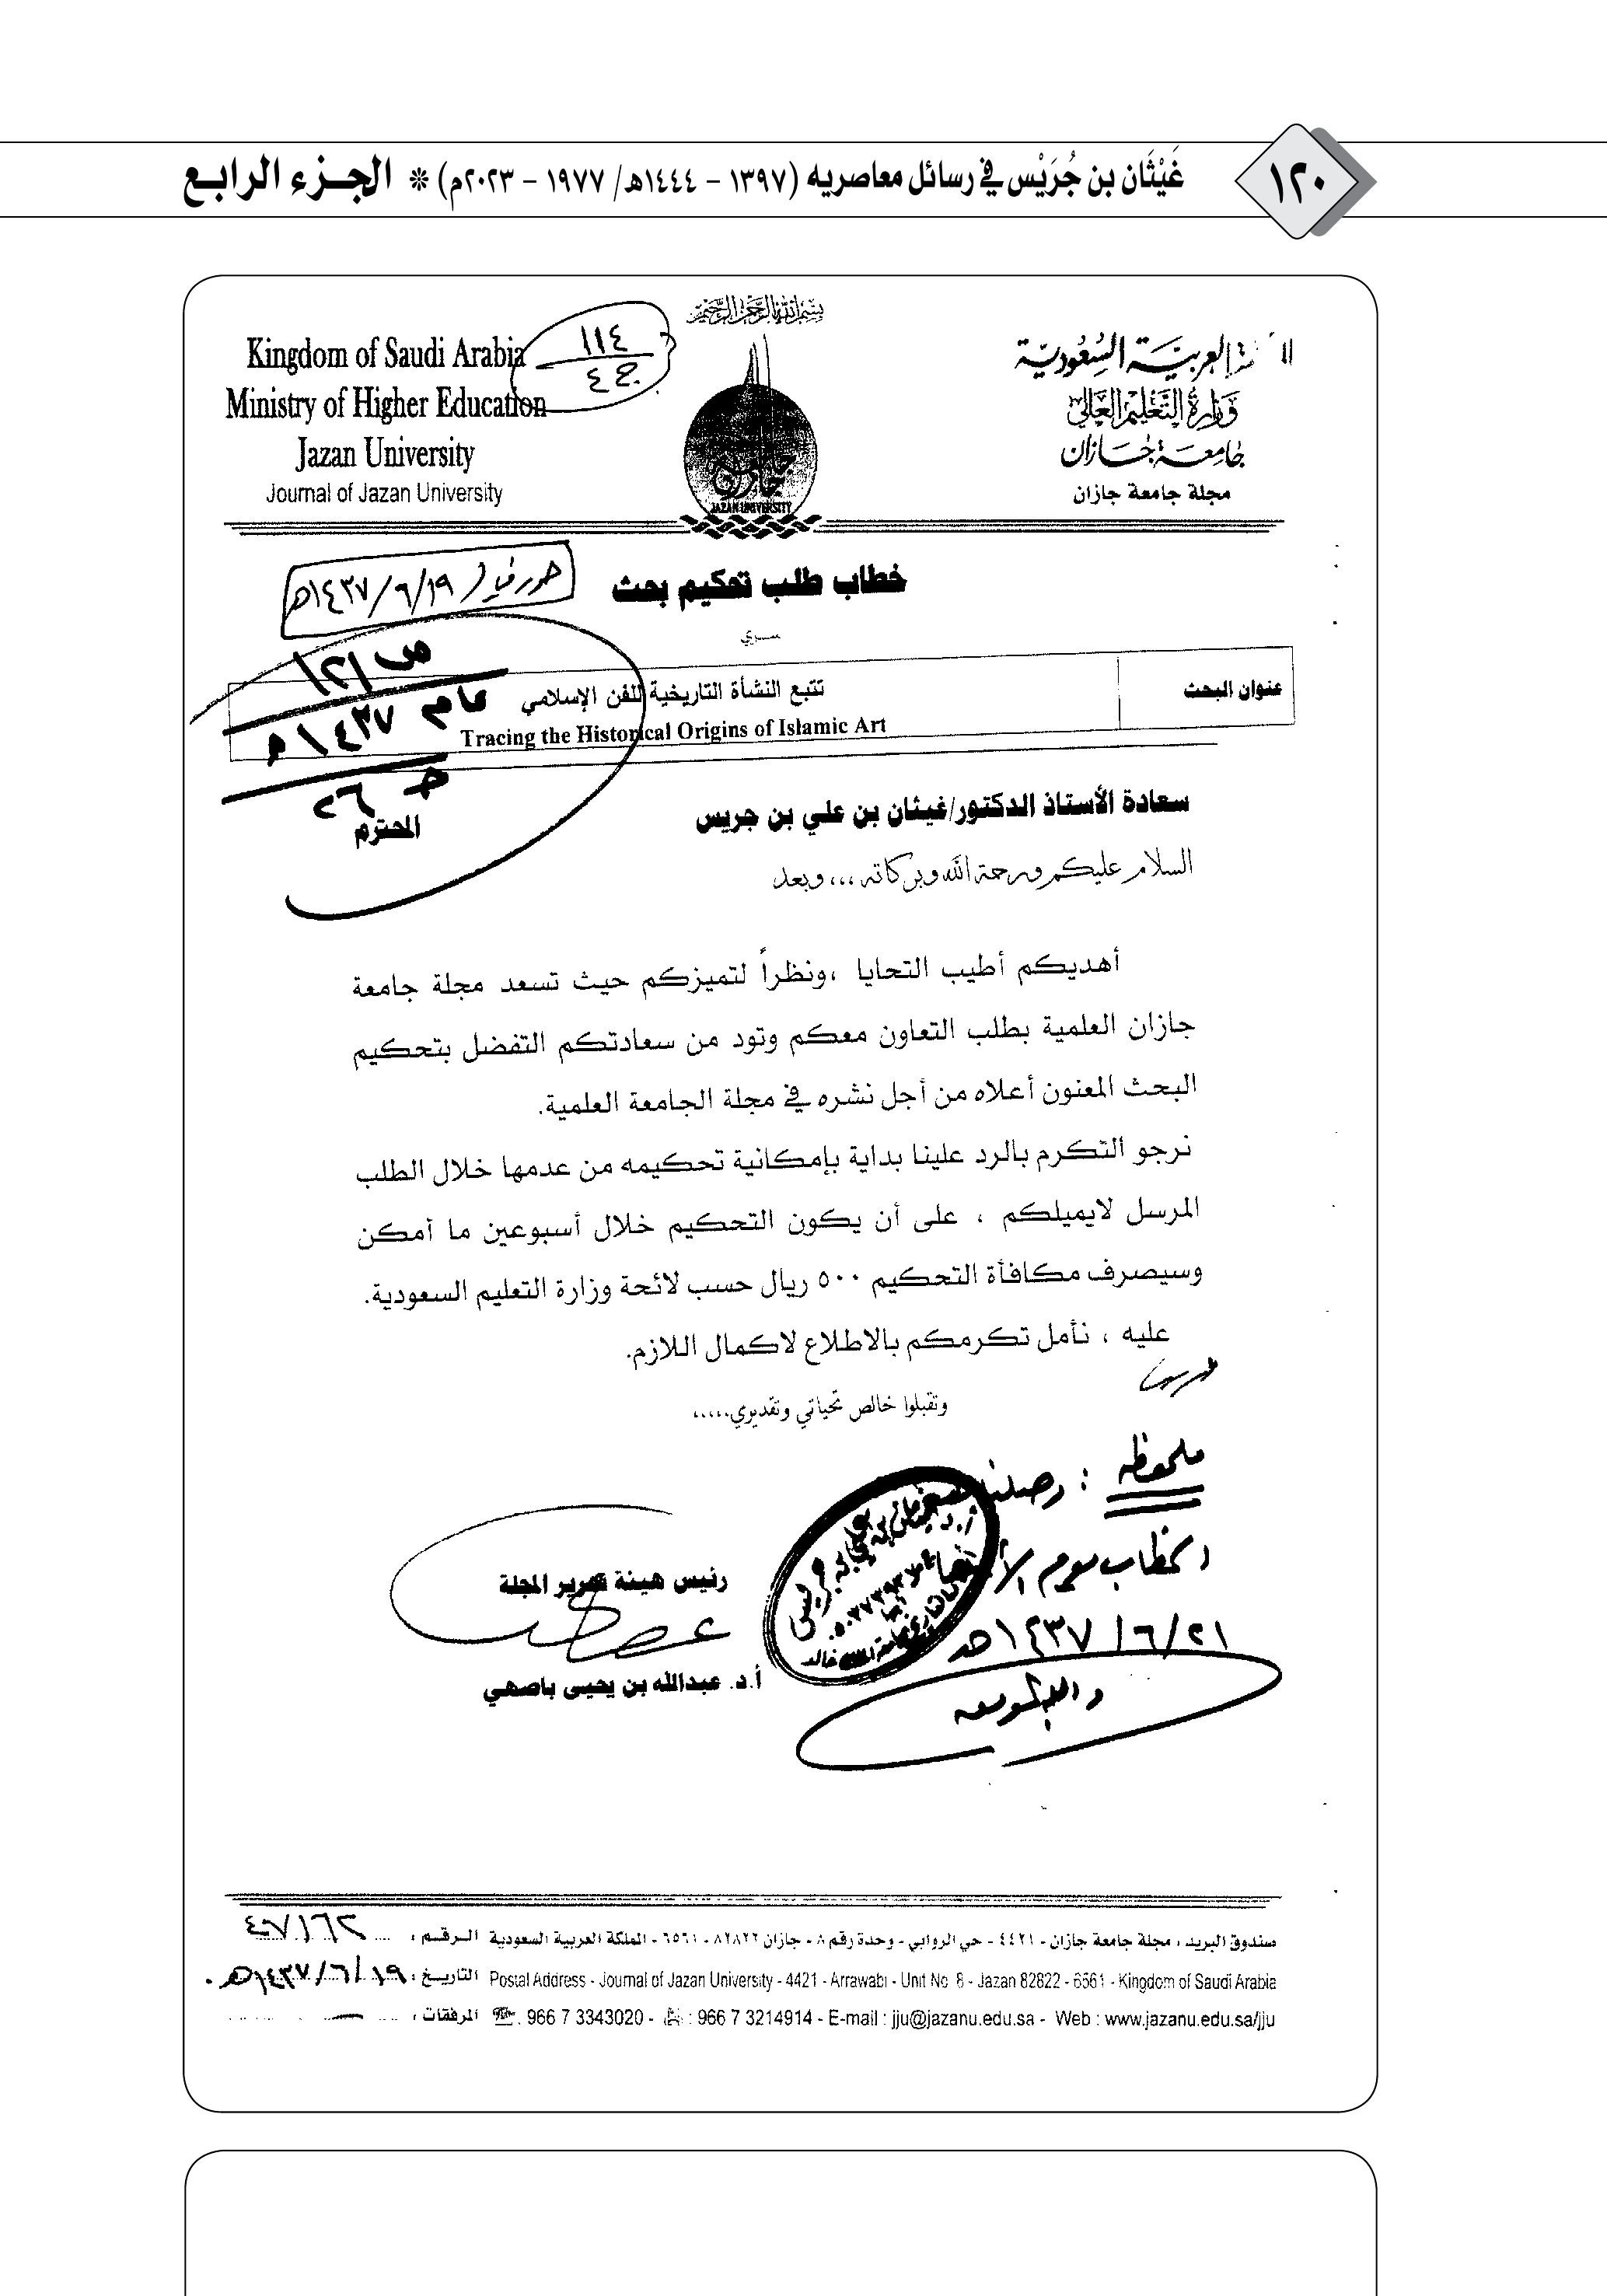 ١٢٠
غَيْثَان بن جُرَيْس في رسائل معاصريه (١٣٩٧ - ١٤٤٤هـ/ ١٩٧٧ - ٢٠٢٣م) * الجـزء الرابـع
بسم الله الرحمن الرحيم
العربية السعودية
وزارة التعليم العالي
جامعة جازان
مجلة جامعة جازان
Kingdom of Saudi Arabia
Ministry of Higher Education
Jazan University
Journal of Jazan University
١١٤
ج ٤
JAZAN UNIVERSITY
خطاب طلب تحكيم بحث
١٤٣٧/٦/١٩هـ
سري
عنوان البحث
تتبع النشأة التاريخية للفن الإسلامي
Tracing the Historical Origins of Islamic Art
عام ١٤٣٧
سعادة الأستاذ الدكتور/غيثان بن علي بن جريس
المحترم
السلام عليكم ورحمة الله وبركاته ،،، وبعد
أهديكم أطيب التحايا ،ونظراً لتميزكم حيث تسعد مجلة جامعة
جازان العلمية بطلب التعاون معكم وتود من سعادتكم التفضل بتحكيم
البحث المعنون أعلاه من أجل نشره في مجلة الجامعة العلمية.
نرجو التكرم بالرد علينا بداية بإمكانية تحكيمه من عدمها خلال الطلب
المرسل لايميلكم ، على أن يكون التحكيم خلال أسبوعين ما أمكن
وسيصرف مكافأة التحكيم ٥٠٠ ريال حسب لائحة وزارة التعليم السعودية.
عليه ، نأمل تكرمكم بالاطلاع لاكمال اللازم.
وتقبلوا خالص تحياتي وتقديري،،،،،
ملحوظه : وصلنا
الخطاب يوم
٢١/٦/١٤٣٧هـ
رئيس هيئة تحرير المجلة
أ.د. عبدالله بن يحيى باصهي
صندوق البريد : مجلة جامعة جازان - ٤٤٢١ - حي الروابي - وحدة رقم ٨ - جازان ٨٢٨٢٢ - ٦٥٦١ - المملكة العربية السعودية
الـرقـم :
Postal Address - Journal of Jazan University - 4421 - Arrawabi - Unit No. 8 - Jazan 82822 - 6561 - Kingdom of Saudi Arabia
التاريـخ : ١٤٣٧/٦/١٩هـ
966 7 3343020 - : 966 7 3214914 - E-mail : jju@jazanu.edu.sa - Web : www.jazanu.edu.sa/jju
المرفقات :